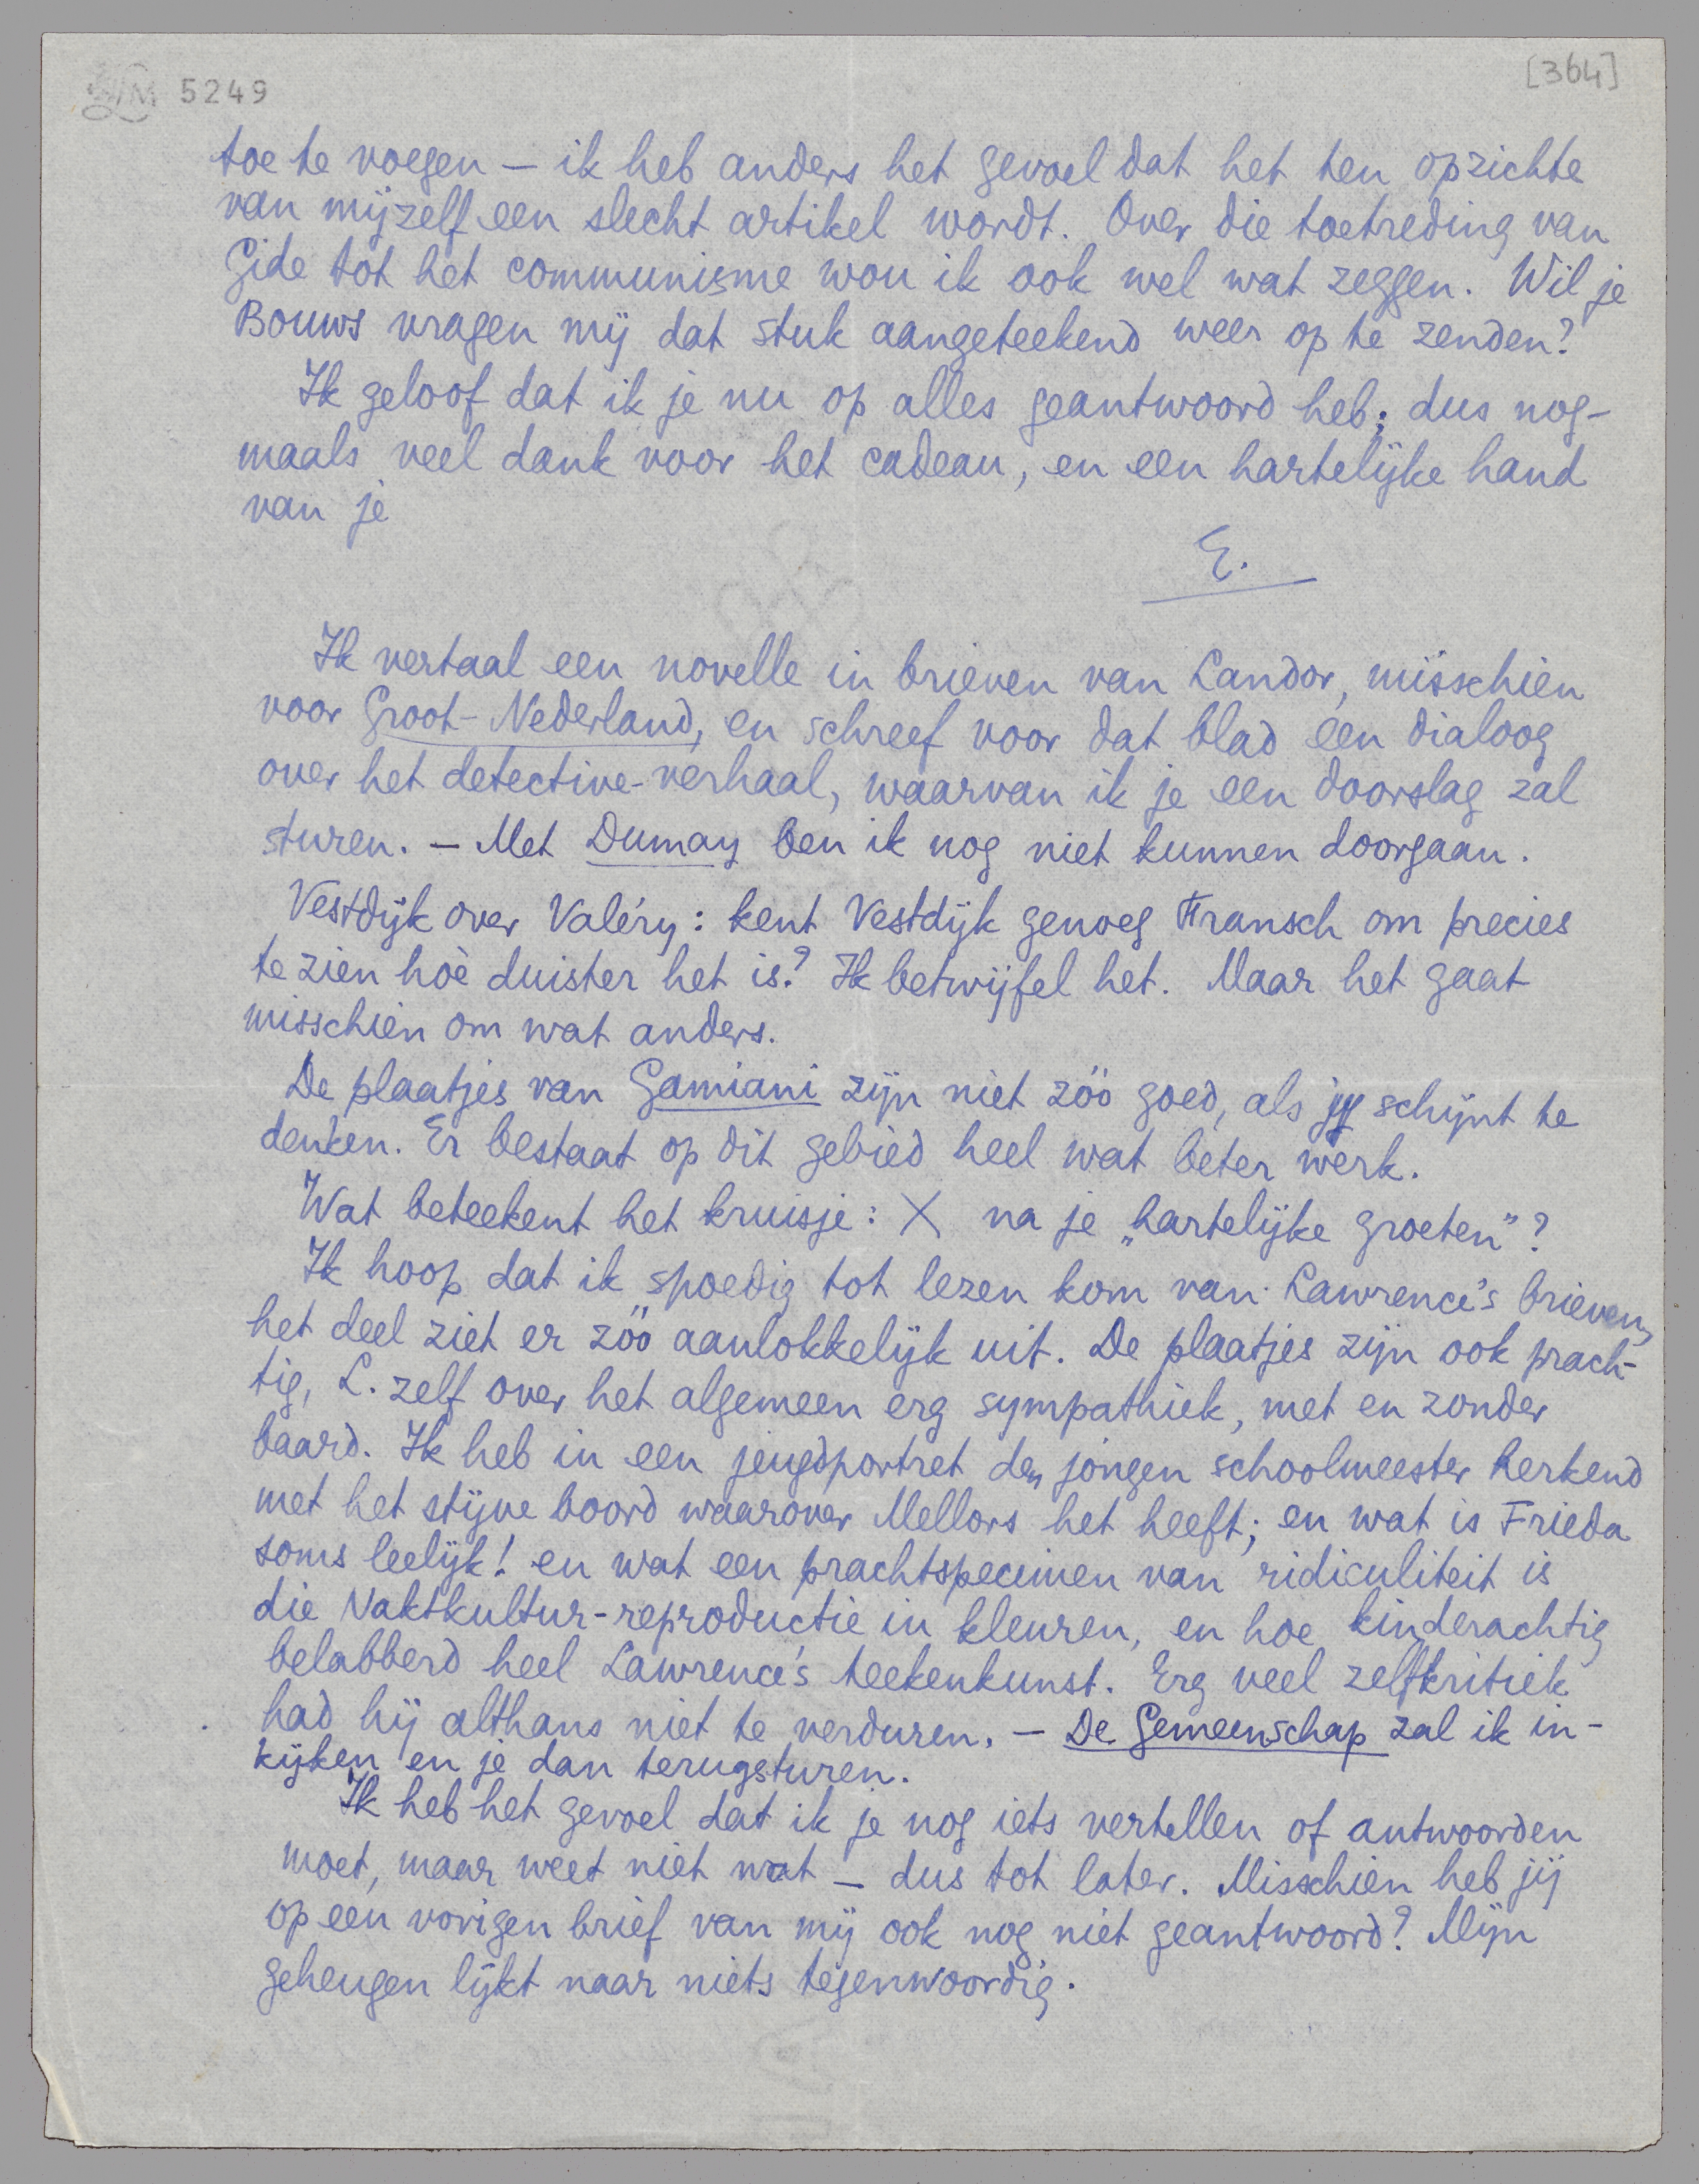 5249
[364]
toe te voegen — ik heb anders het gevoel dat het ten opzichte
van mijzelf een slecht artikel wordt. Over die toetreding van
Gide tot het communisme wou ik ook wel wat zeggen. Wil je
Bouws vragen mij dat stuk aangeteekend weer op te zenden?
Ik geloof dat ik je nu op alles geantwoord heb; dus nog-
maals veel dank voor het cadeau, en een hartelijke hand
van je
E.
Ik vertaal een novelle in brieven van Landor, misschien
voor Groot-Nederland, en schreef voor dat blad een dialoog
over het detective-verhaal, waarvan ik je een doorslag zal
sturen. — Met Dumay ben ik nog niet kunnen doorgaan.
Vestdijk over Valéry: kent Vestdijk genoeg Fransch om precies
te zien hoè duister het is? Ik betwijfel het. Maar het gaat
misschien om wat anders.
De plaatjes van Gamiani zijn niet zóó goed, als jij schijnt te
denken. Er bestaat op dit gebied heel wat beter werk.
Wat beteekent het kruisje: X na je „hartelijke groeten"?
Ik hoop dat ik spoedig tot lezen kom van Lawrence's brieven,
het deel ziet er zóó aanlokkelijk uit. De plaatjes zijn ook prach-
tig, L. zelf over het algemeen erg sympathiek, met en zonder
baard. Ik heb in een jeugdportret den jongen schoolmeester herkend
met het stijve boord waarover Mellors het heeft; en wat is Frieda
soms leelijk! en wat een prachtspecimen van ridiculiteit is
die Naktkultur-reproductie in kleuren, en hoe kinderachtig
belabberd heel Lawrence's teekenkunst. Erg veel zelfkritiek
had hij althans niet te verduren. — De Gemeenschap zal ik in-
kijken en je dan terugsturen.
Ik heb het gevoel dat ik je nog iets vertellen of antwoorden
moet, maar weet niet wat — dus tot later. Misschien heb jij
op een vorigen brief van mij ook nog niet geantwoord? Mijn
geheugen lijkt naar niets tegenwoordig.